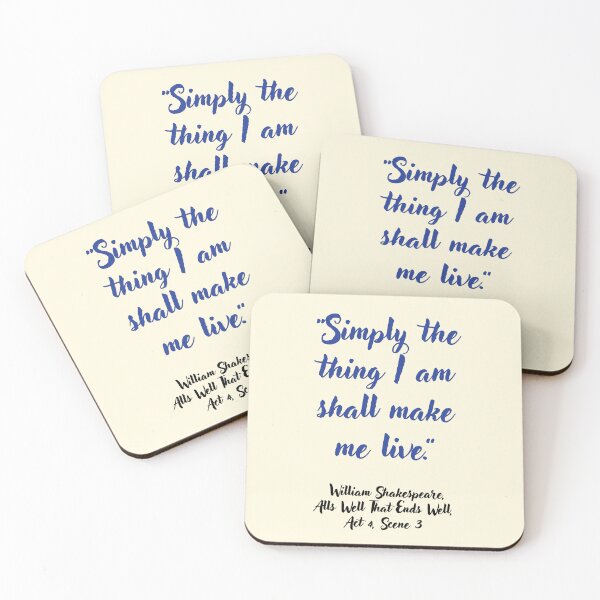 "Simply the
thing I am
shall make
"
"Simply the
thing I am
shall make
me live."
"Simply the
thing I am
shall make
me live."
William Shakes
Alls Well That Ends
Act 4, Sc
"Simply the
thing I am
shall make
me live."
William Shakespeare,
Alls Well That Ends Well,
Act 4, Scene 3